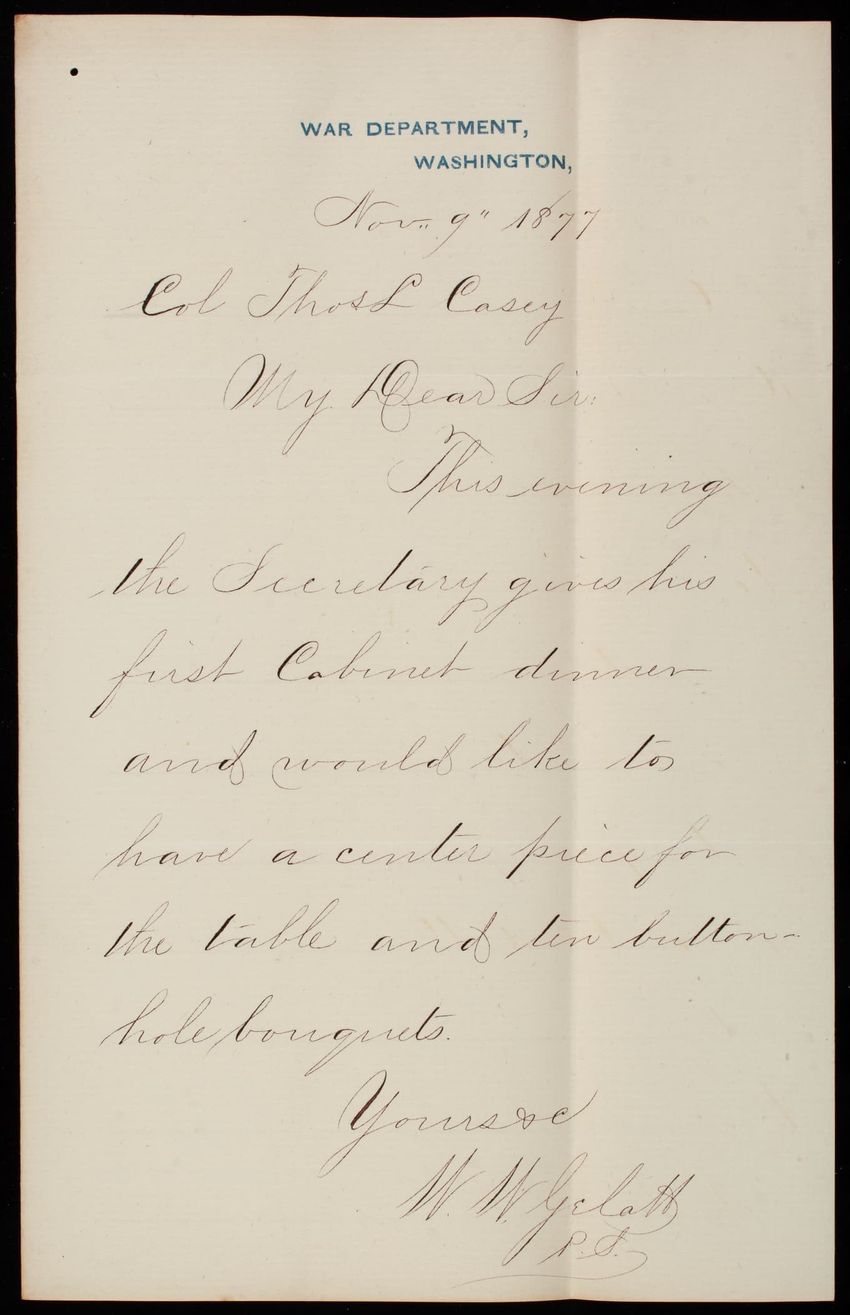 WAR DEPARTMENT,
WASHINGTON,
Nov. 9" 1877
Col Thos L Casey
My Dear Sir:
This evening
the Secretary gives his
first Cabinet dinner
and would like to
have a center piece for
the table and ten button-
hole bouquets.
Yours &c
W. W. Gelatt
P.S.